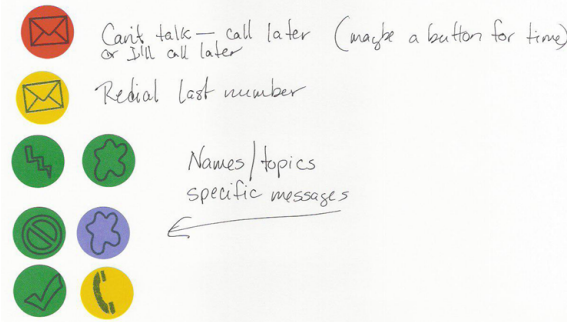 Can't talk — call later (maybe a button for time)
or I'll call later
Redial last number
Names/topics
specific messages